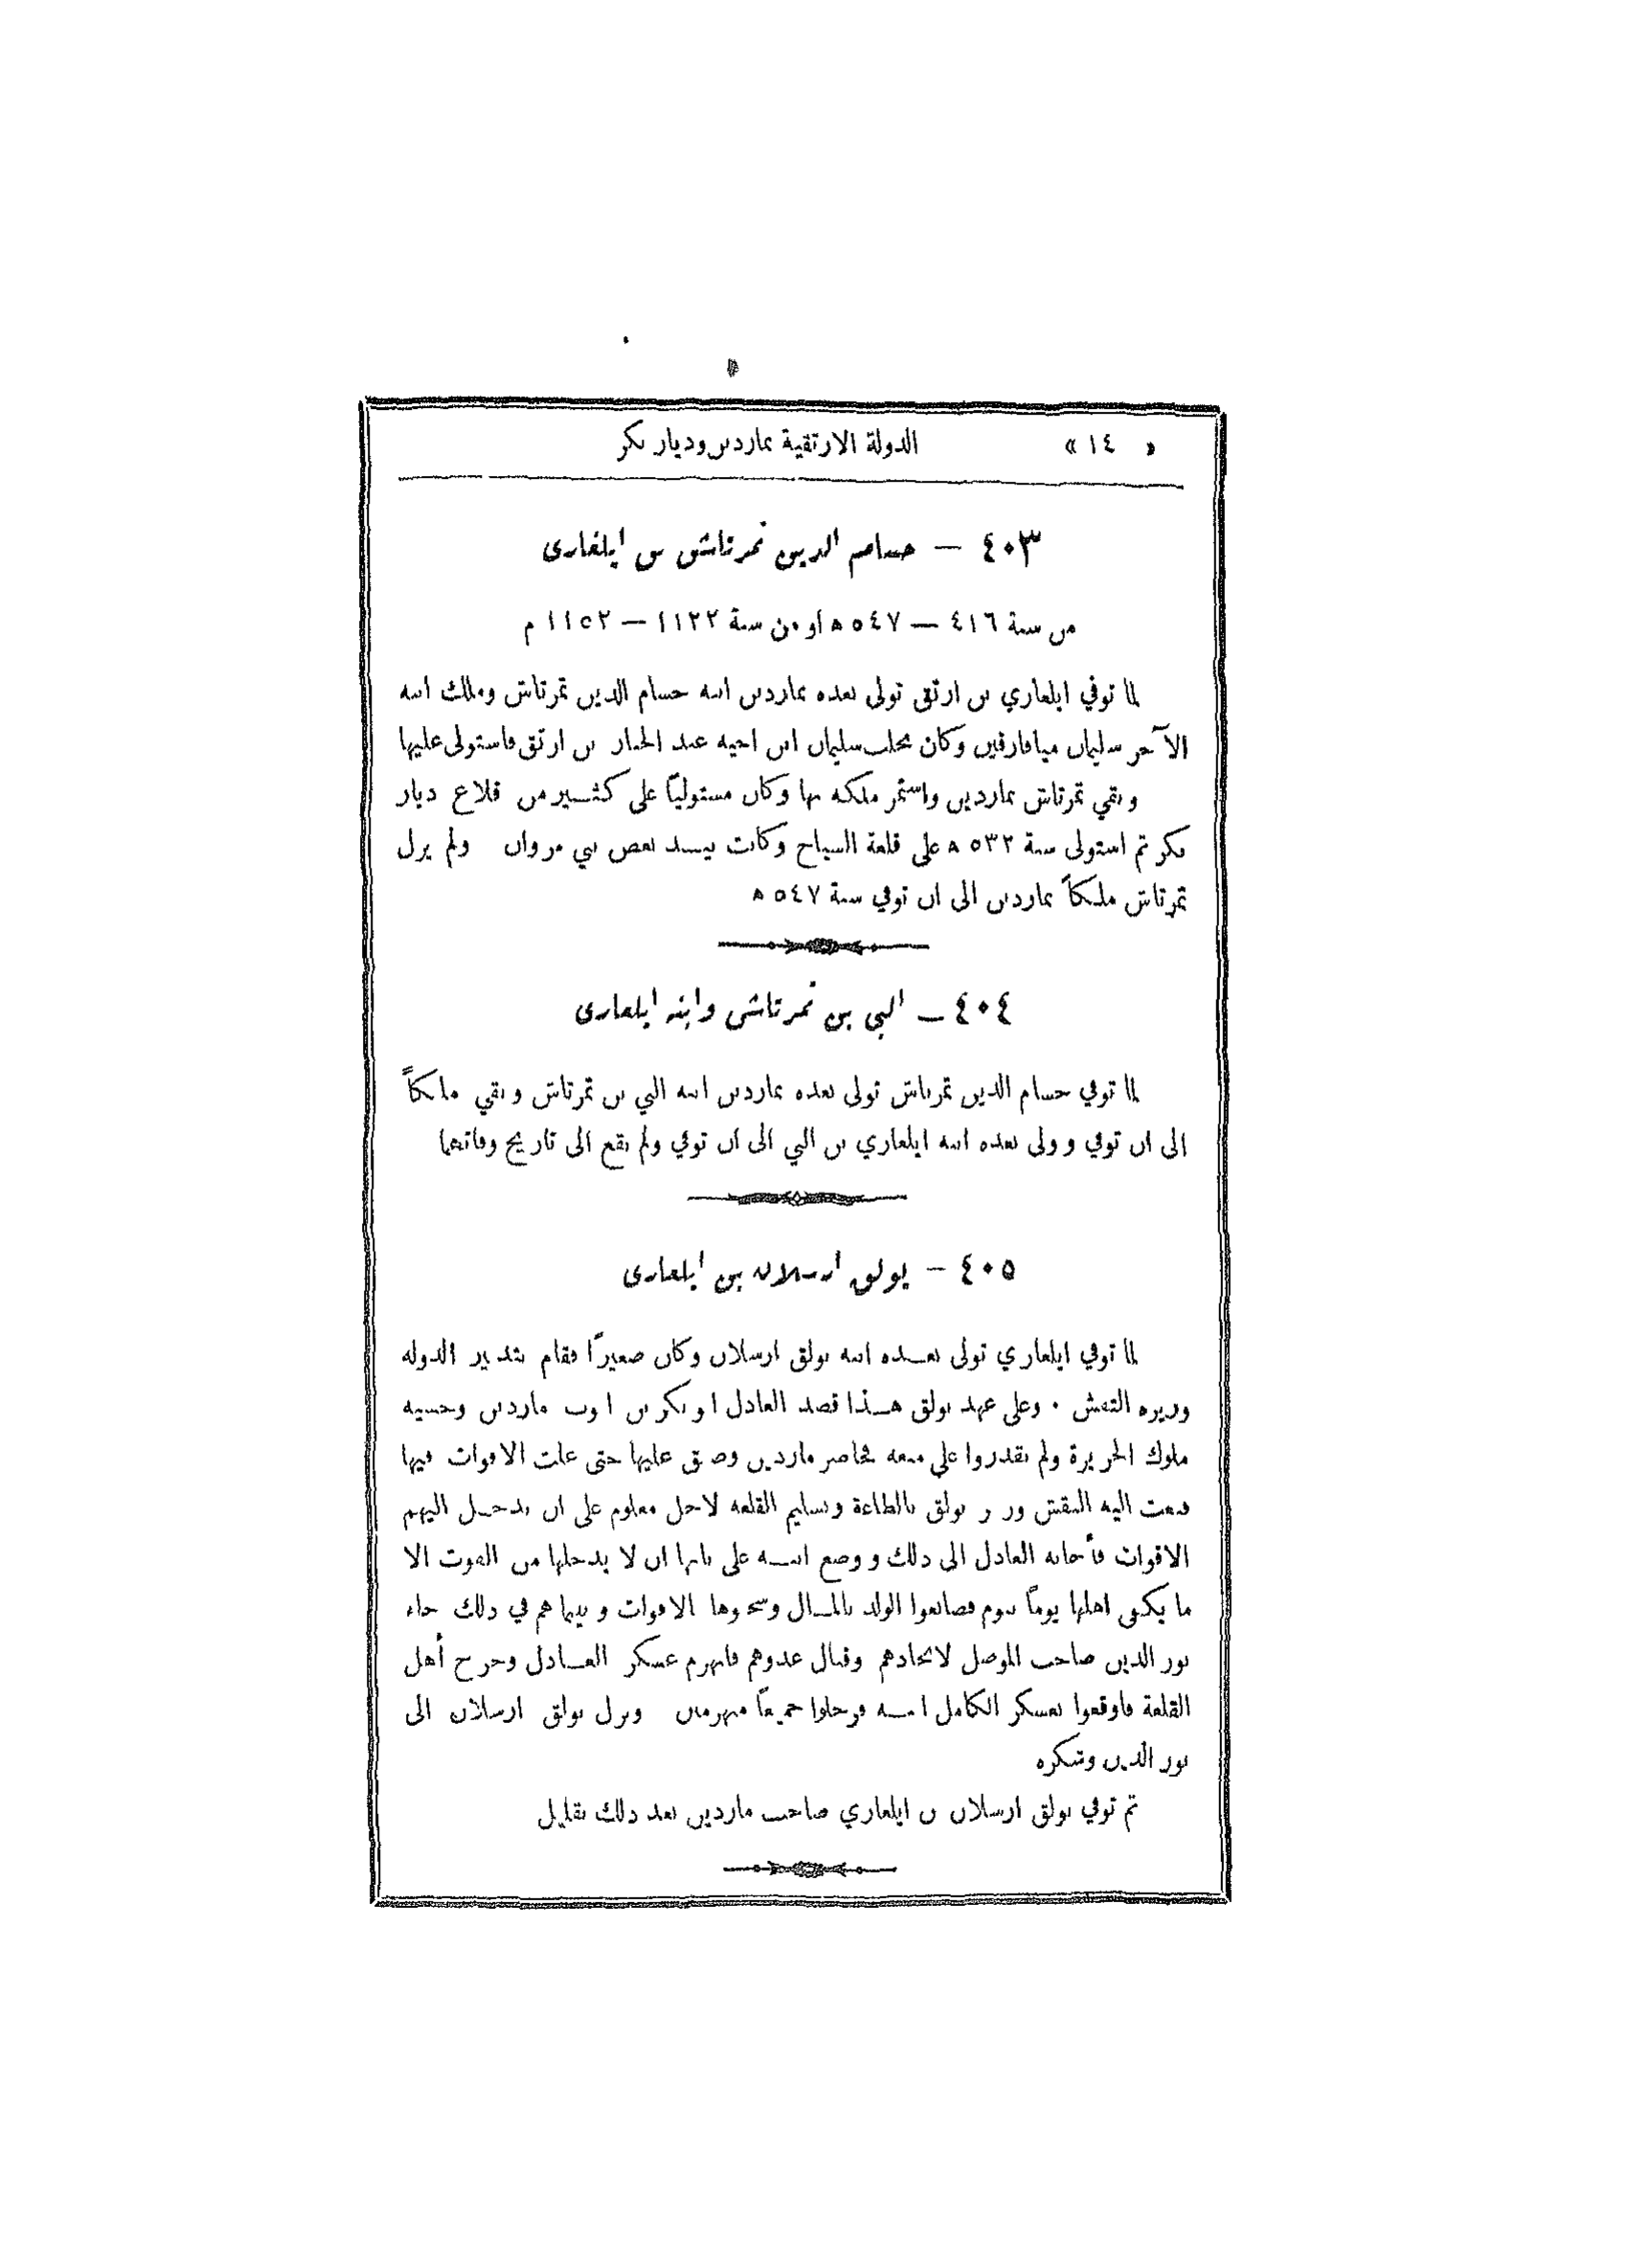 « ١٤ » الدولة الارتقية بماردين وديار بكر
٤٠٣ — حسام الدين تمرتاش بن ايلغازى
من سنة ٤١٦ — ٥٤٧ ه او من سنة ١١٢٢ — ١١٥٢ م
لما توفي ايلغازي بن ارتق تولى بعده بماردين ابنه حسام الدين تمرتاش وملك ابنه
الآخر سليمان ميافارقين وكان بحلب سليمان ابن اخيه عبد الجبار بن ارتق فاستولى عليها
وبقي تمرتاش بماردين واستمر ملكه بها وكان مستولياً على كثير من قلاع ديار
بكر ثم استولى سنة ٥٣٢ ه على قلعة السياج وكانت بيد بعض بني مروان ولم يزل
تمرتاش ملكاً بماردين الى ان توفي سنة ٥٤٧ ه
٤٠٤ — البي بن تمرتاش وابنه ايلغازى
لما توفي حسام الدين تمرتاش تولى بعده بماردين ابنه البي بن تمرتاش وبقي ملكاً
الى ان توفي وولى بعده ابنه ايلغازي بن البي الى ان توفي ولم نقع الى تاريخ وفاتهما
٤٠٥ — بولق ارسلان بن ايلغازى
لما توفي ايلغازي تولى بعده ابنه بولق ارسلان وكان صغيرًا فقام بتدبير الدوله
وزيره النقش ٠ وعلى عهد بولق هذا قصد العادل ابو بكر بن ايوب ماردين وخشيه
ملوك الجزيرة ولم يقدروا على منعه فحاصر ماردين وضيق عليها حتى غلت الاقوات فيها
فبعث اليه النقش وزير بولق بالطاعة وتسليم القلعه لاجل معلوم على ان يدخل اليهم
الاقوات فأجابه العادل الى ذلك ووضع ابنه على بابها ان لا يدخلها من القوت الا
ما يكفي اهلها يوماً بيوم فصانعوا الولد بالمال وشحنوها الاقوات وبينما هم في ذلك جاء
نور الدين صاحب الموصل لانجادهم وقتال عدوهم فانهزم عسكر العادل وخرج أهل
القلعة فاوقعوا بعسكر الكامل ابنه فرحلوا جميعاً منهزمين ونزل بولق ارسلان الى
نور الدين وشكره
ثم توفي بولق ارسلان بن ايلغازي صاحب ماردين بعد ذلك بقليل